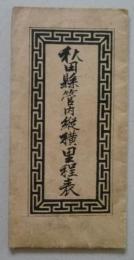 秋田縣管内縱横里程表